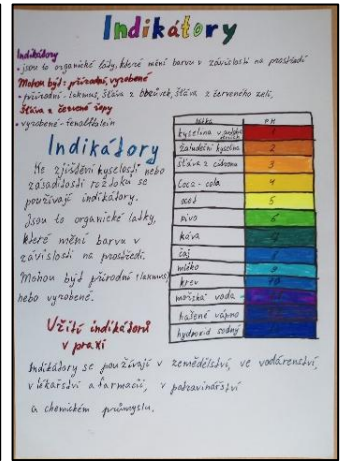 Indikátory
Indikátory
• jsou to organické látky, které mění barvu v závislosti na prostředí
Mohou být: přírodní, vyrobené
• přírodní - lakmus, šťáva z borůvek, šťáva z červeného zelí,
šťáva z červené řepy
• vyrobené - fenolftalein
Indikátory
Ke zjištění kyselosti nebo
zásaditosti roztoku se
používají indikátory.
Jsou to organické látky,
které mění barvu v
závislosti na prostředí.
Mohou být přírodní (lakmus,
nebo vyrobené.
látka PH
kyselina v
žaludeční kyselina 2
šťáva z citronu 3
Coca - cola 4
ocet 5
pivo 6
káva
čaj
mléko
krev
mořská voda
hašené vápno
hydroxid sodný
Užití indikátorů
v praxi
Indikátory se používají v zemědělství, ve vodárenství,
v lékařství a farmacii, v potravinářství
a chemickém průmyslu.